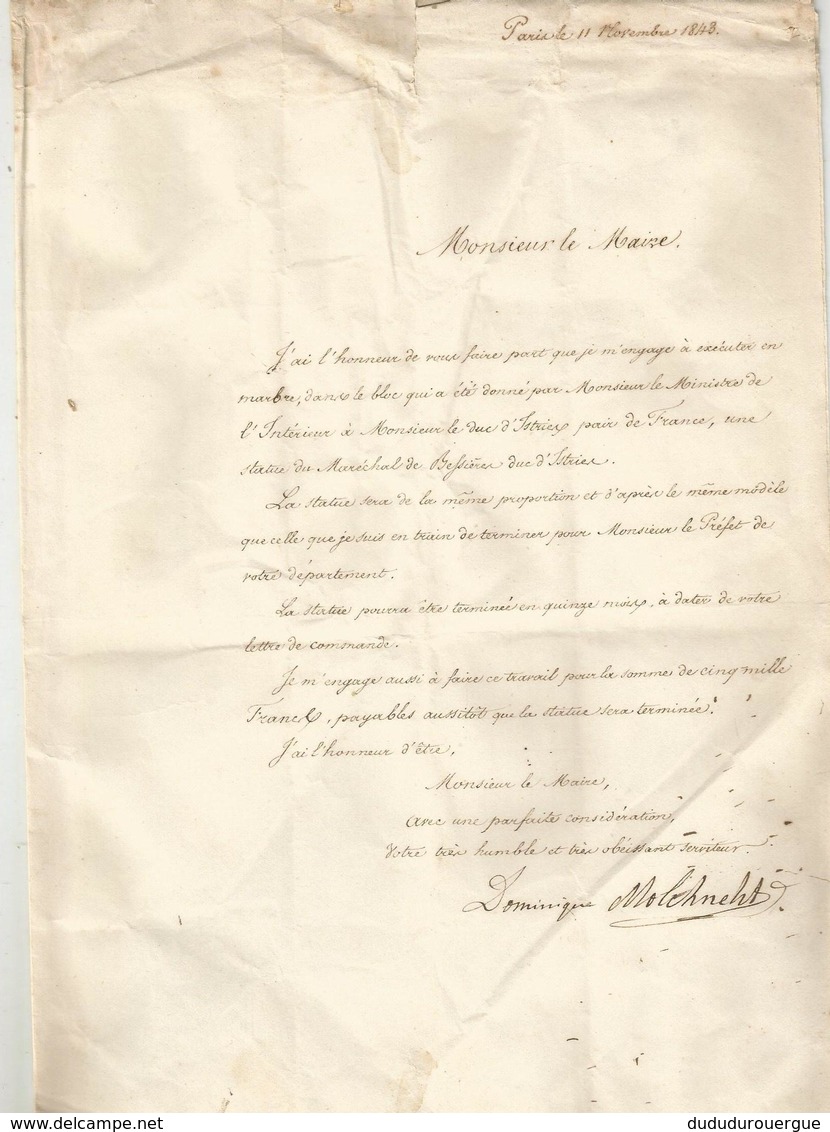 Paris le 11 Novembre 1843.
Monsieur le Maire.
J'ai l'honneur de vous faire part que je m'engage à exécuter en
marbre, dans le bloc qui a été donné par Monsieur le Ministre de
l'Intérieur à Monsieur le duc d'Istries pair de France, une
statue du Maréchal de Bessières duc d'Istries.
La statue sera de la même proportion et d'après le même modèle
que celle que je suis en train de terminer pour Monsieur le Préfet de
votre département.
La statue pourra être terminée en quinze mois, à dater de votre
lettre de commande.
Je m'engage aussi à faire ce travail pour la somme de cinq mille
Francs, payables aussitôt que la statue sera terminée.
J'ai l'honneur d'être,
Monsieur le Maire,
Avec une parfaite considération,
Votre très humble et très obéissant serviteur.
Dominique Molchneht
delcampe.net
dududurouergue